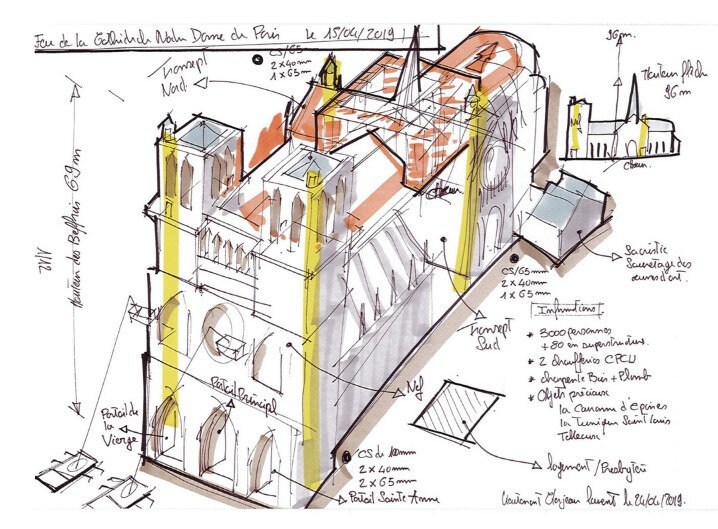 Feu de la Cathédrale Notre Dame de Paris le 15/04/2019
CS/65
2 x 40mm
1 x 65m
Transept
Nord
96m.
Hauteur flèche
96m
Nef
Chœur.
Chœur
Hauteur des Beffrois 69m
1/12
Sacristie
Sauvetage des
œuvres d'art.
CS/65mm
2 x 40mm
1 x 65mm
Transept
Sud
Informations
* 3000 personnes
+80 en superstructure.
* 2 chaufferies CPCU
* charpente Bois + Plomb
* Objets précieux
la Couronne d'Epines
la Tunique Saint Louis
Tableaux
Nef
Portail Principal
Portail de
la
Vierge
CS de 100mm
2 x 40mm
2 x 65mm
Portail Sainte Anne
logement/Presbytère
Lieutenant laurent le 24/04/2019.